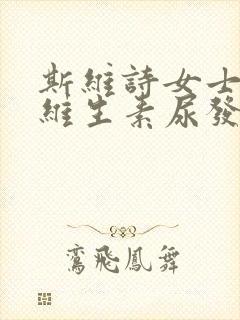 斯維詩女士
維生素尿發
鸞飛鳳舞